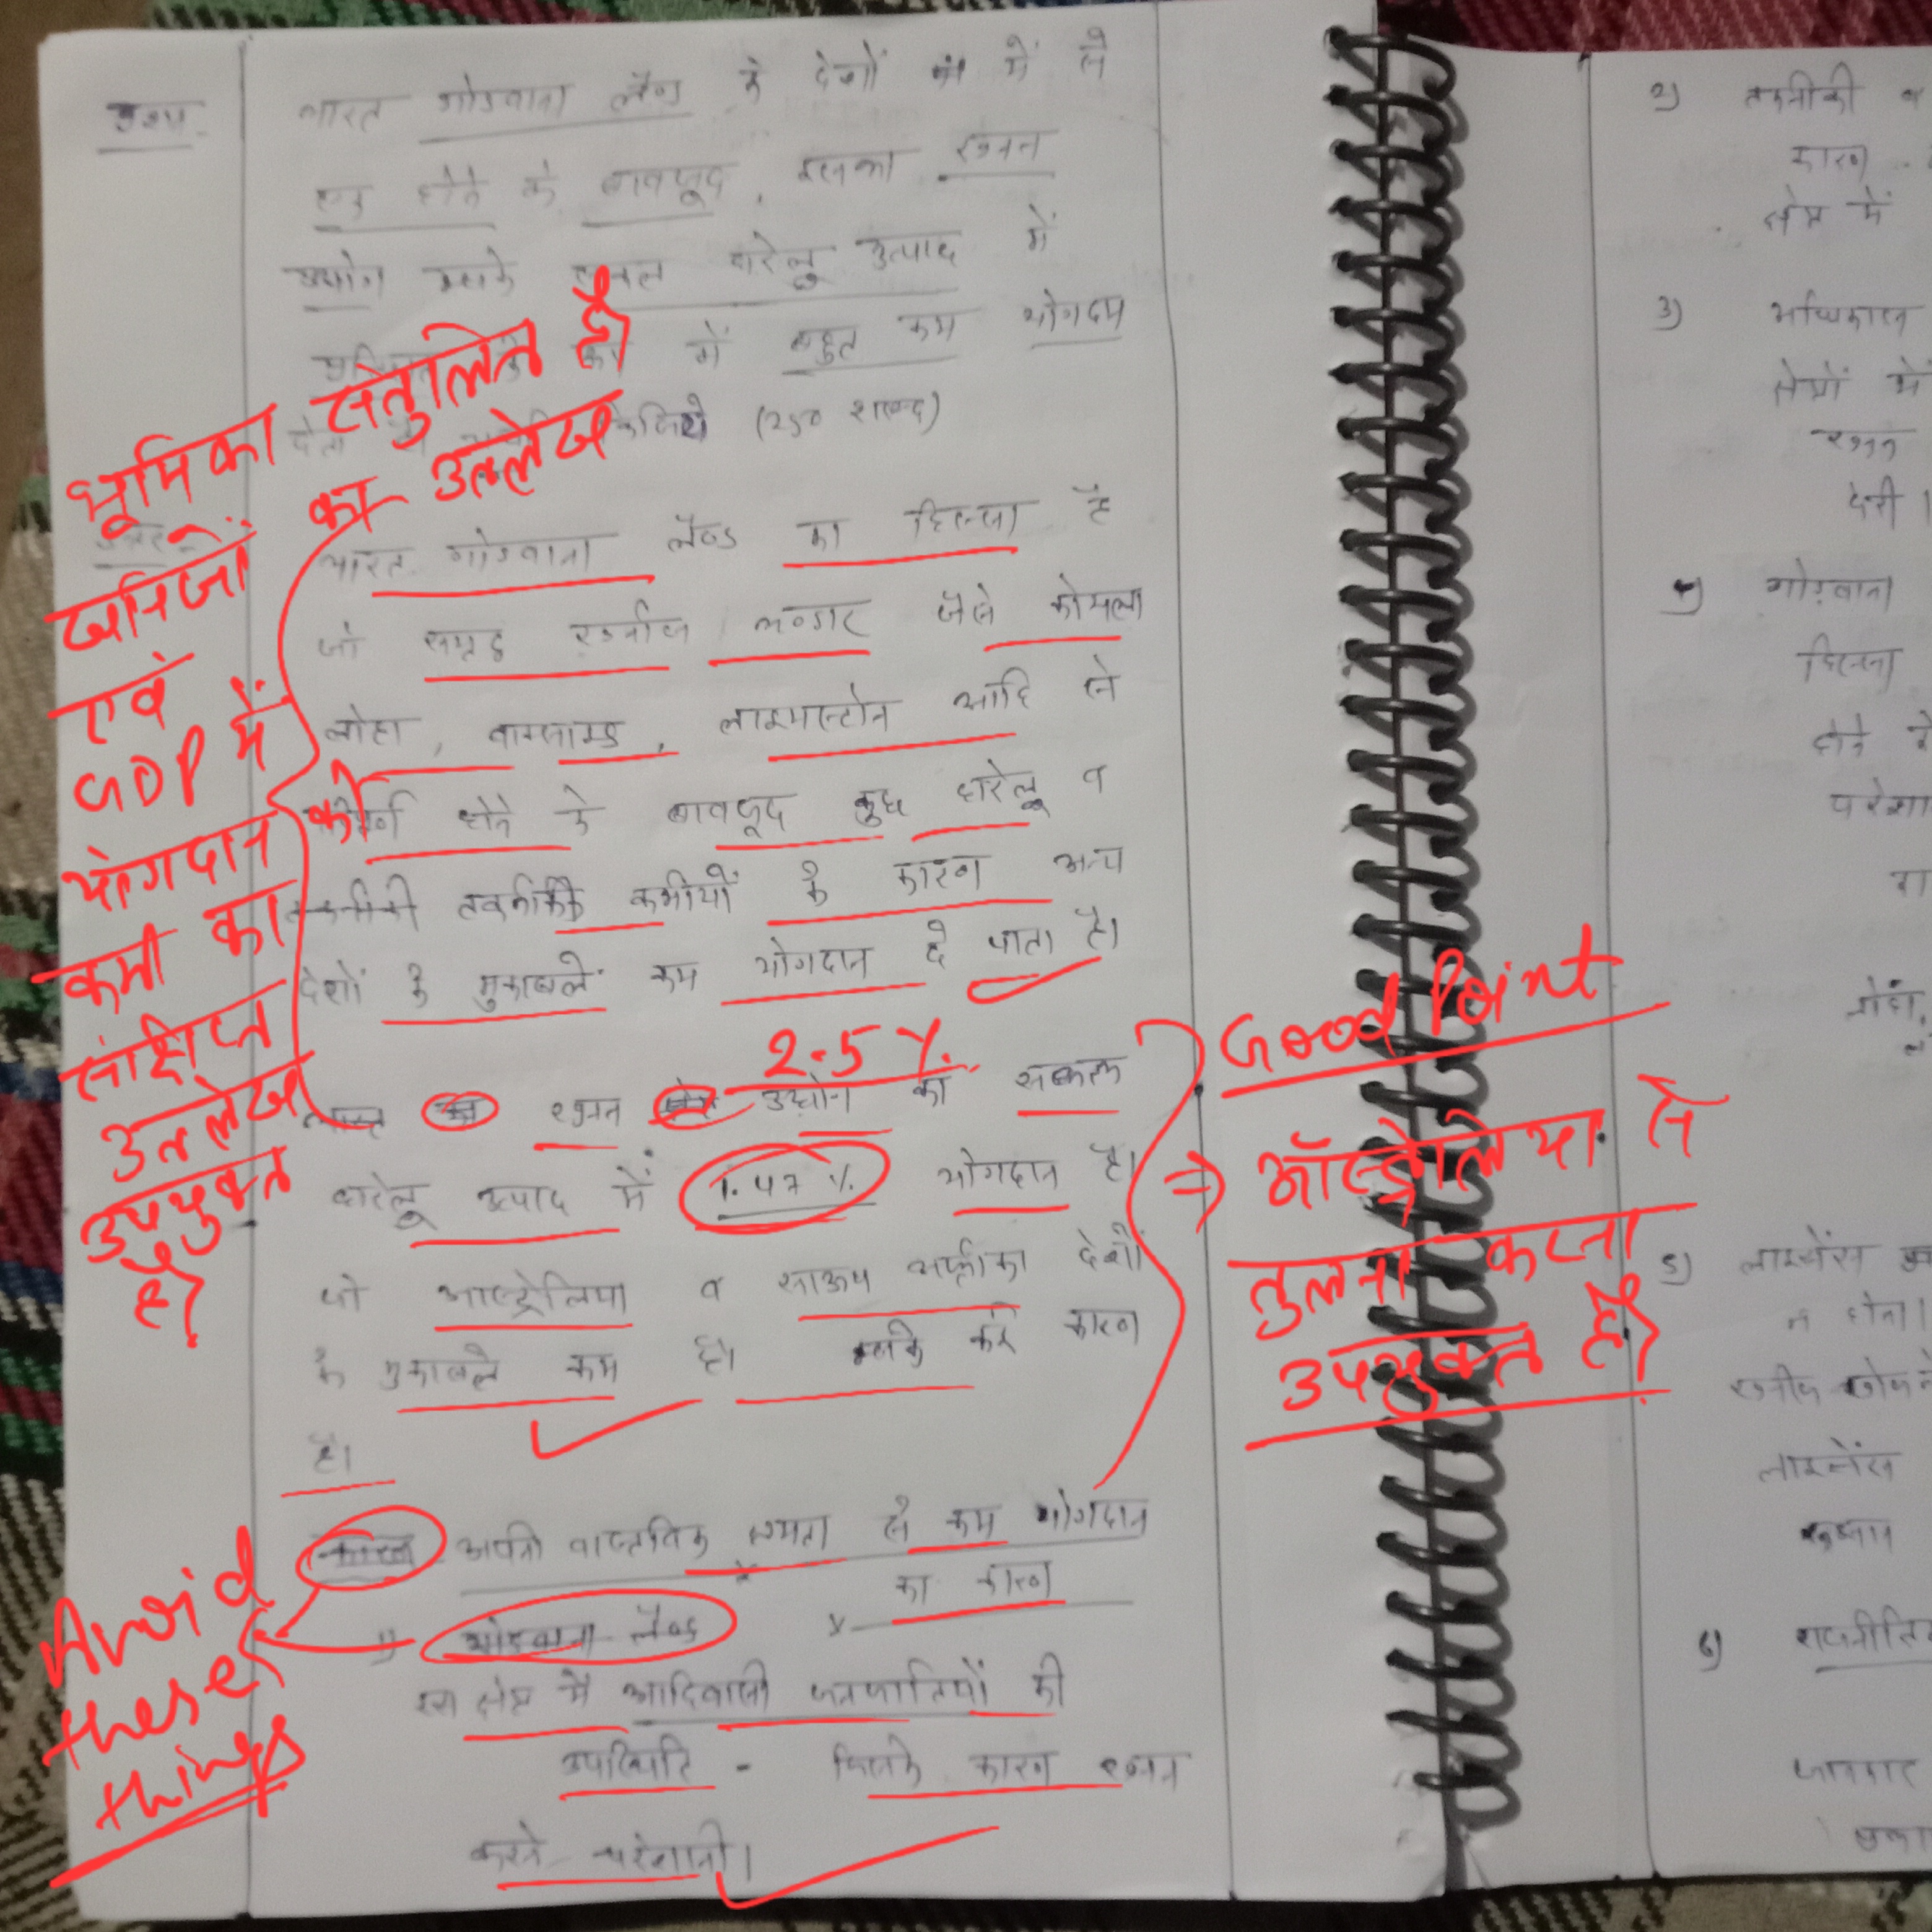 प्रश्न.
भारत गोंडवाना लैण्ड के देशों में से
एक होने के बावजूद, इसका खनन
उद्योग इसके सकल घरेलू उत्पाद में
में बहुत कम योगदान
(250 शब्द)
भूमिका संतुलित है
खनिजों का उल्लेख
एवं
GDP में
योगदान की
कमी का
संक्षिप्त
उल्लेख
उपयुक्त
है
उत्तर-
भारत गोंडवाना लैण्ड का हिस्सा है
जो समृद्ध खनीज भण्डार जैसे कोयला
लोहा, बाक्साइड, लाइमस्टोन आदि से
होने के बावजूद कुछ घरेलू व
तकनीकी कमीयों के कारण अन्य
देशों के मुकाबले कम योगदान दे पाता है।
2.5 %
खनन उद्योग का सकल
घरेलू उत्पाद में 1.47 % योगदान है।
जो आस्ट्रेलिया व साऊथ अफ्रीका देशों
के मुकाबले कम है। इसके कई कारण
है।
Good Point
⇒ ऑस्ट्रेलिया से
तुलना करना
उपयुक्त है
कारण अपनी वास्तविक क्षमता से कम योगदान
का कारण
1) गोंडवाना लैण्ड
इस क्षेत्र में आदिवासी जनजातियों की
उपस्थिति - जिसके कारण खनन
करने परेशानी।
Avoid
these
things
2) तकनीकी व
कारण
क्षेत्र में
3) अधिकांश
क्षेत्रों में
खनन
देती।
4) गोंडवाना
हिस्सा
होने से
5) लाइसेंस
न होना।
खनीज खोजने
लाइसेंस
रुझान
6)